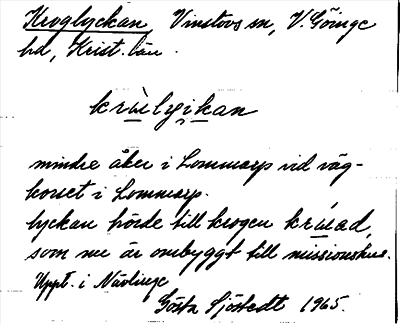 Kroglyckan Vinslövs sn, V. Göinge
hd, Krist. län.
mindre åker i Lommarp vid väg-
korset i Lommarp.
lyckan hörde till krogen
som nu är ombyggt till missionshus.
Uppt. i Nävlinge
Gösta Sjöstedt 1965.